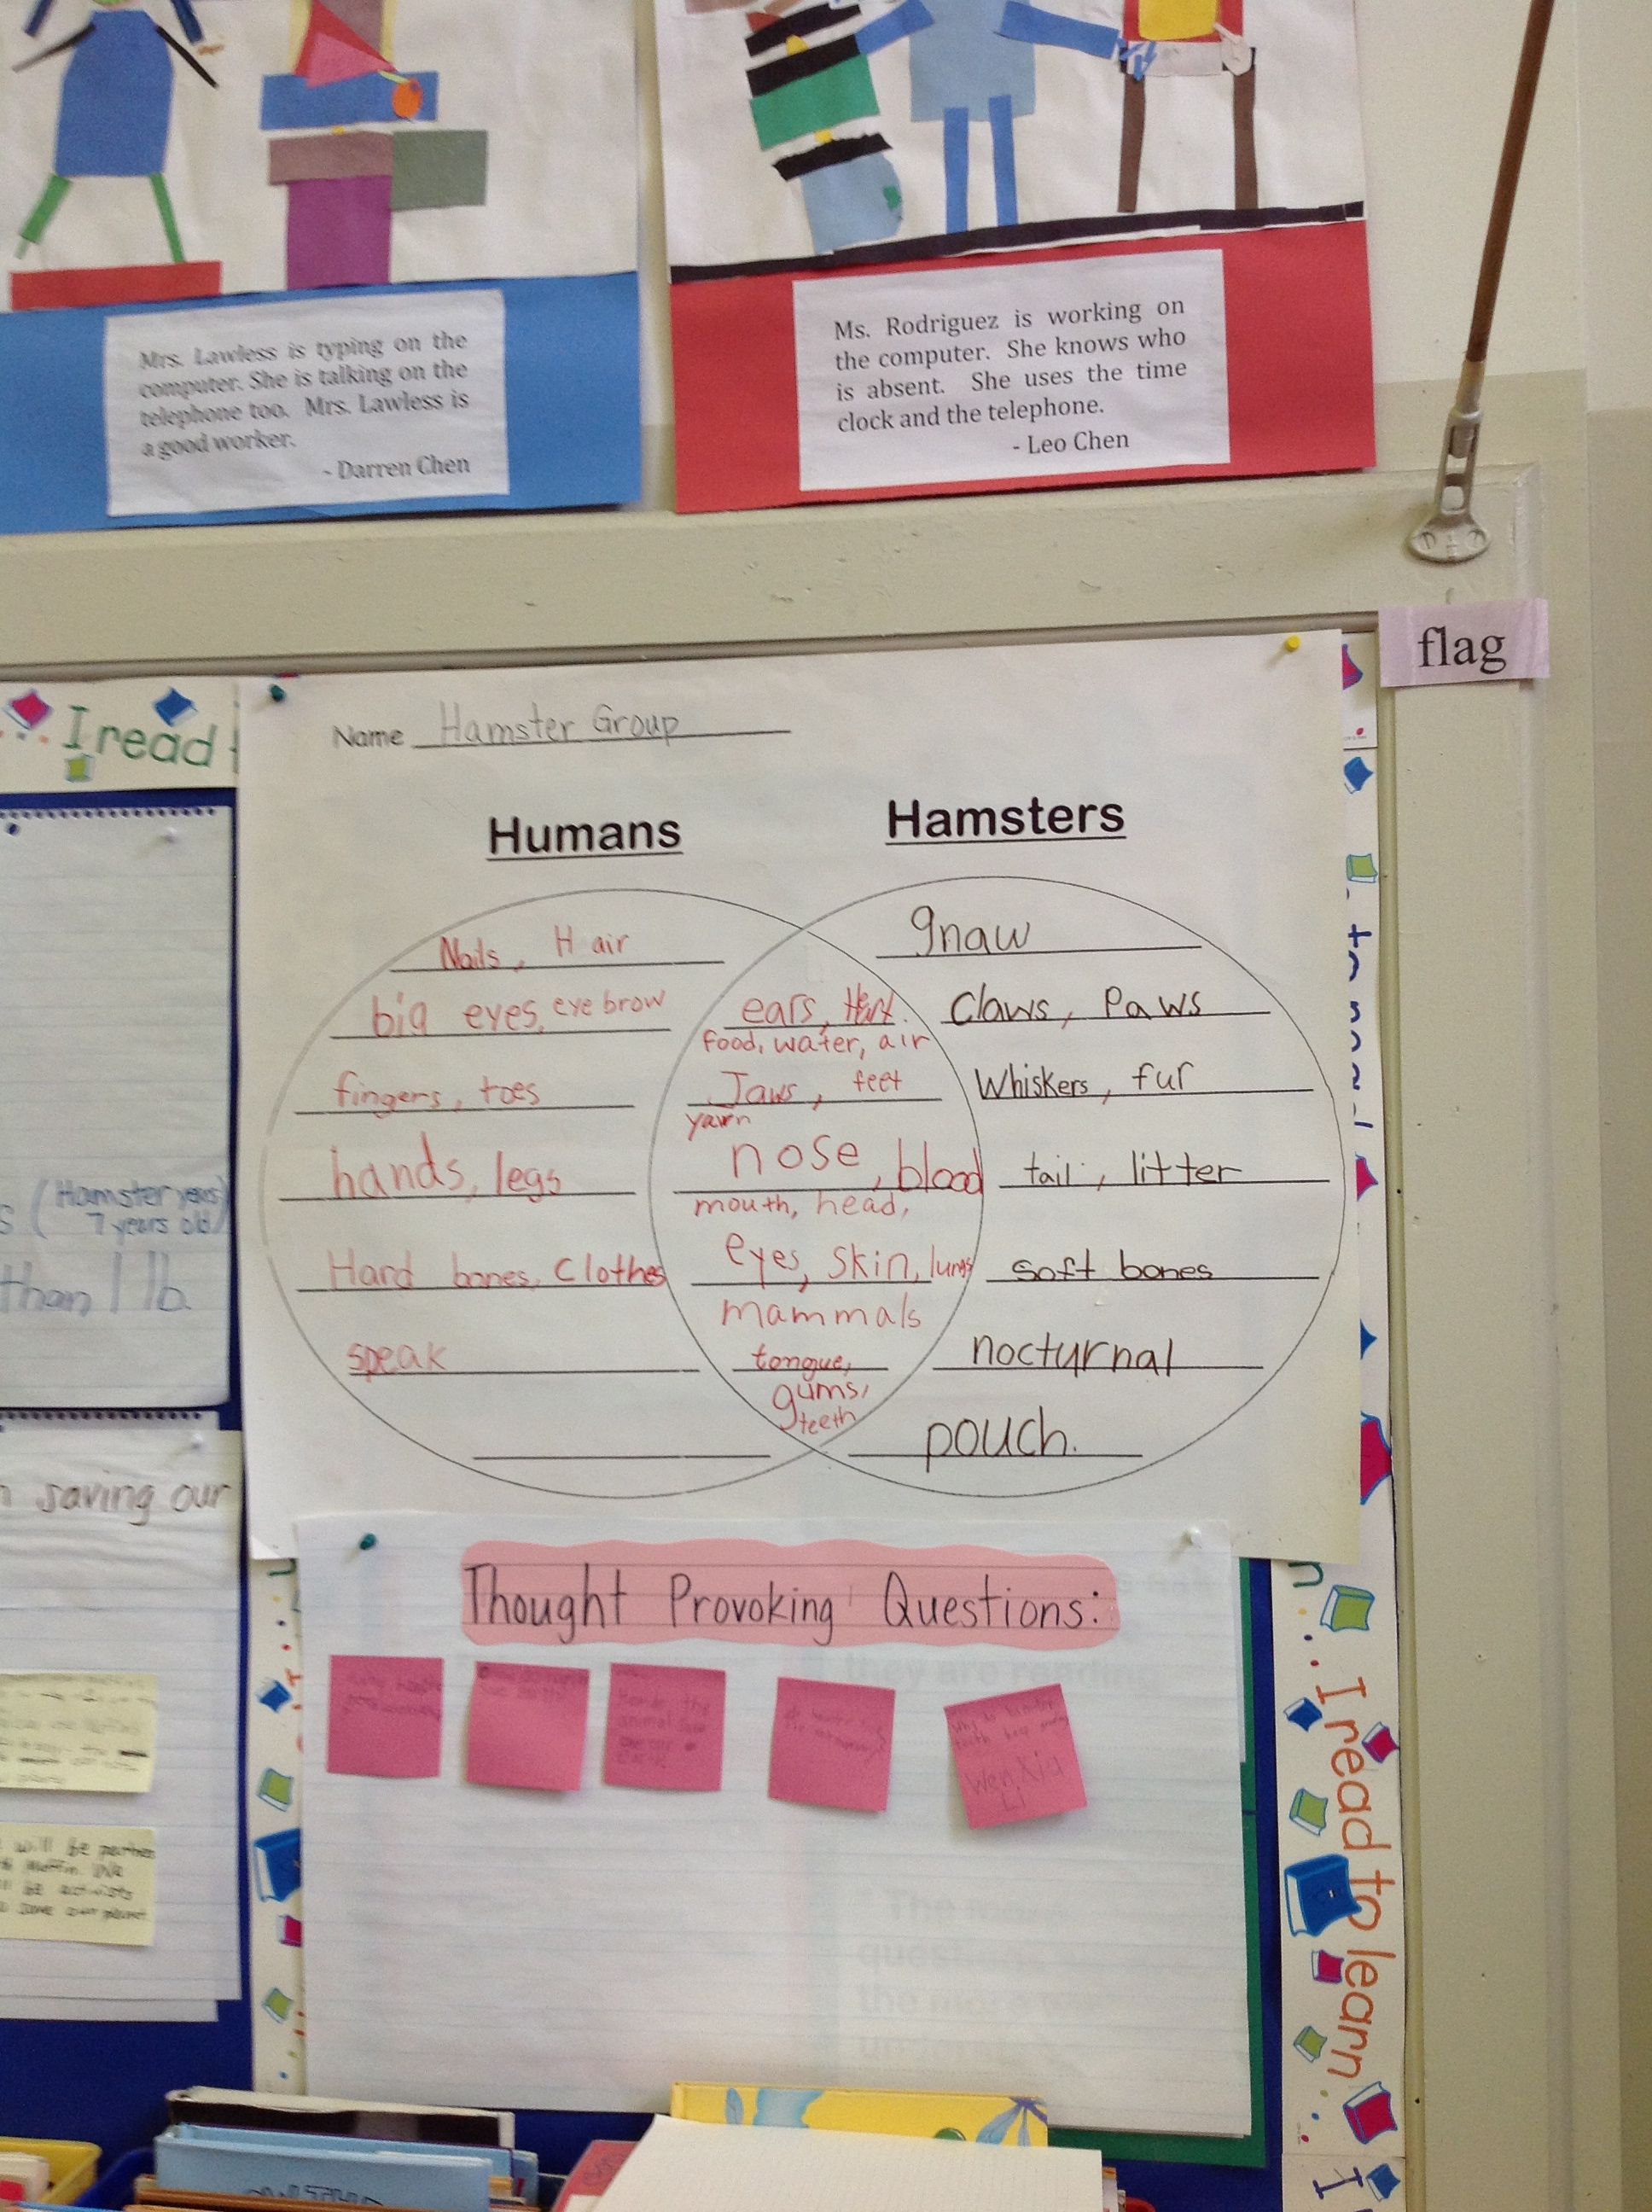 Mrs. Lawless is typing on the
computer. She is talking on the
telephone too. Mrs. Lawless is
a good worker.
- Darren Chen
Ms. Rodriguez is working on
the computer. She knows who
is absent. She uses the time
clock and the telephone.
- Leo Chen
flag
I read
Name Hamster Group
Humans
Hamsters
Nails, Hair
big eyes, eye brow
fingers, toes
hands, legs
Hard bones, clothes
speak
ears,
food, water, air
Jaws, feet
yawn
nose, blood
mouth, head,
eyes, skin, lungs
mammals
tongue,
gums,
teeth
gnaw
Claws, Paws
Whiskers, fur
tail, litter
soft bones
nocturnal
pouch.
(Hamster years
7 years old)
than 1 lb.
saving our
will be
Muffin. We
be activists
save our planet
Thought Provoking Questions:
Wen Xia
Li
I read to learn
I